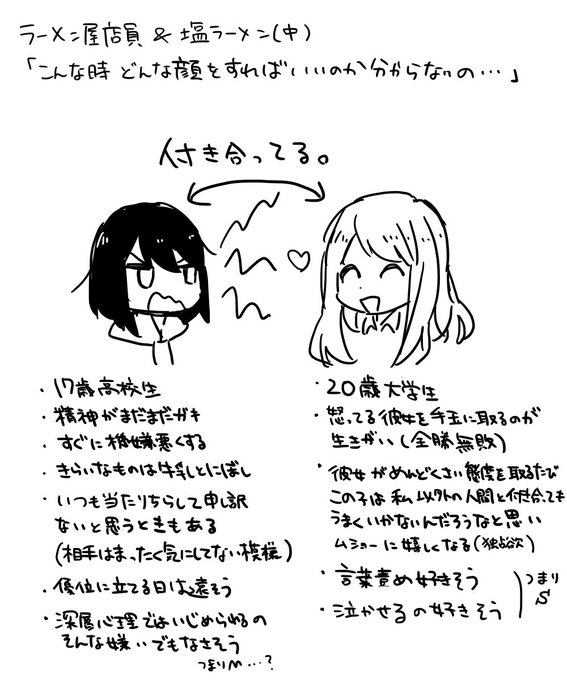 ラーメン屋店員 & 塩ラーメン(中)
「こんな時 どんな顔をすればいいのか分からないの…」
付き合ってる。
・17歳高校生
・精神がまだまだガキ
・すぐに機嫌悪くする
・きらいなものは牛乳とにぼし
・いつも当たりちらして申し訳
ないと思うときもある
(相手はまったく気にしてない模様)
・優位に立てる日は遠そう
・深層心理ではいじめられるの
そんな嫌いでもなさそう
つまりM…?
・20歳大学生
・怒ってる彼女を手玉に取るのが
生きがい(全勝無敗)
・彼女がめんどくさい態度を取るたび
この子は私以外の人間と付き合っても
うまくいかないんだろうなと思い
ムショーに嬉しくなる(独占欲)
・言葉責め好きそう
・泣かせるの好きそう
つまり
S